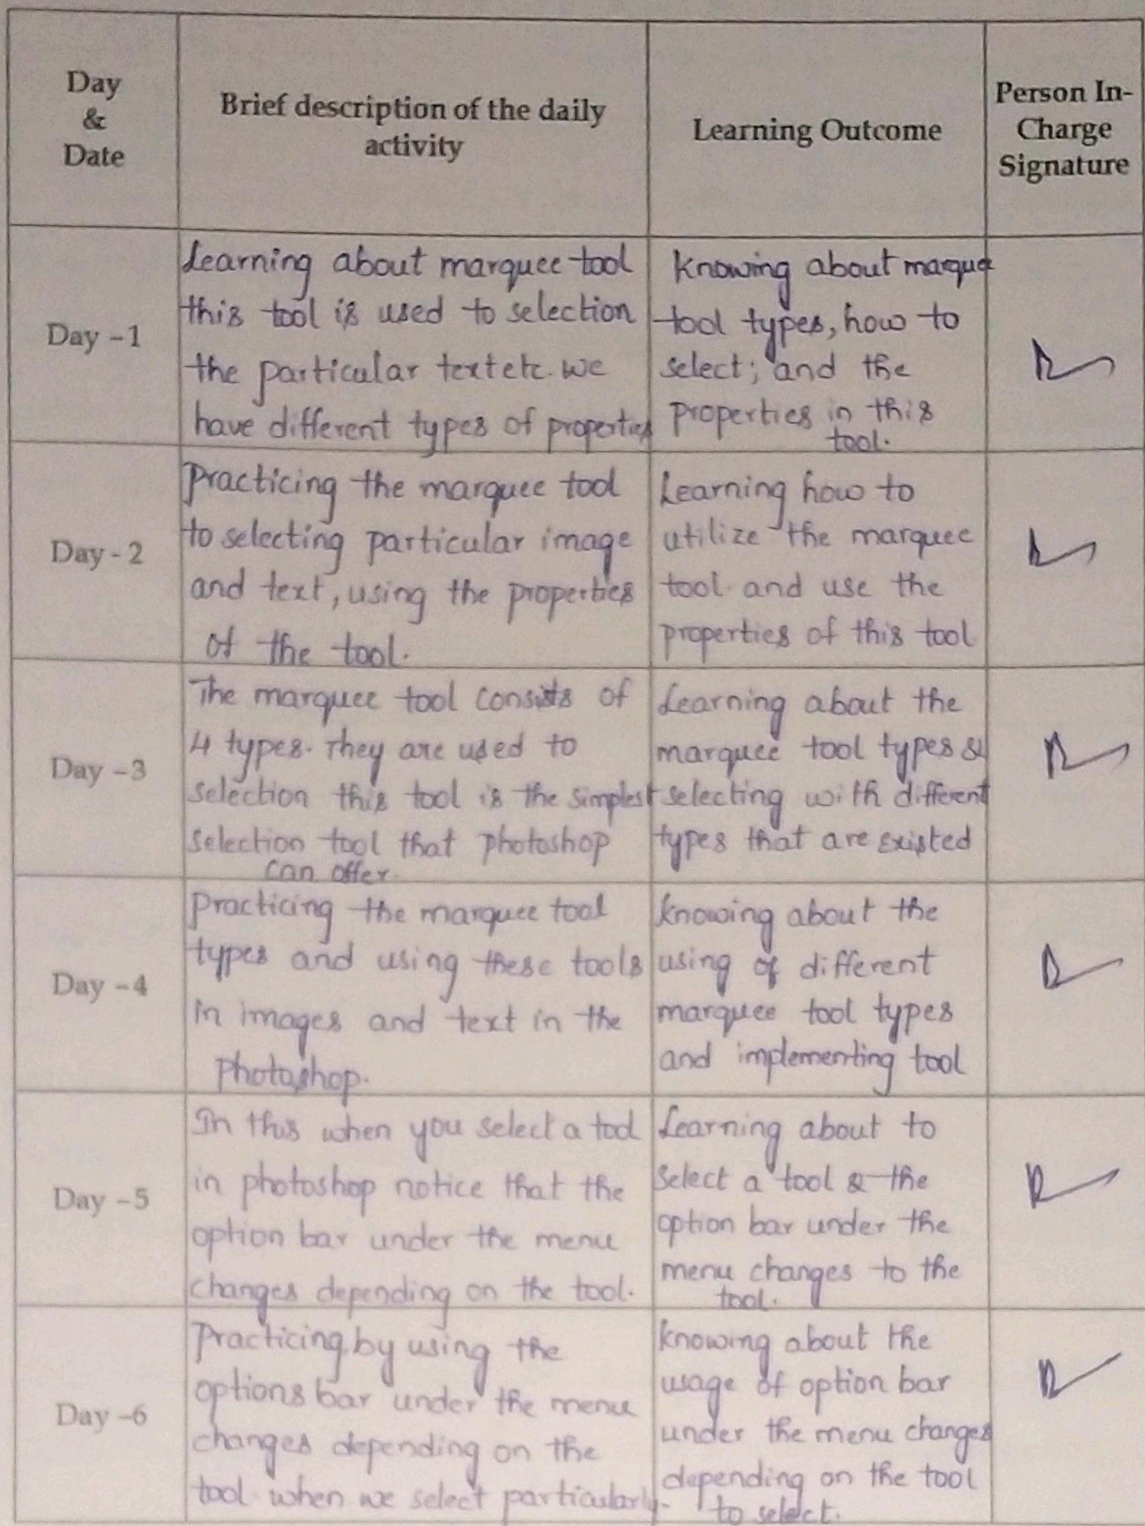 Day
&
Date
Brief description of the daily
activity
Learning Outcome
Person In-
Charge
Signature
Day -1
Learning about marquee tool
this tool is used to selection
the particular text etc. we
have different types of properties
Knowing about marquee
tool types, how to
select; and the
properties in this
tool.
Day - 2
Practicing the marquee tool
to selecting particular image
and text, using the properties
of the tool.
Learning how to
utilize the marquee
tool. and use the
properties of this tool
Day -3
The marquee tool consists of
4 types. They are used to
selection this tool is the simplest
selection tool that photoshop
can offer.
Learning about the
marquee tool types &
selecting with different
types that are existed
Day -4
Practicing the marquee tool
types and using these tools
in images and text in the
photoshop.
Knowing about the
using of different
marquee tool types
and implementing tool
Day -5
In this when you select a tool
in photoshop notice that the
option bar under the menu
changes depending on the tool.
Learning about to
select a tool & the
option bar under the
menu changes to the
tool.
Day -6
Practicing by using the
options bar under the menu
changes depending on the
tool when we select particularly.
Knowing about the
usage of option bar
under the menu changes
depending on the tool
to select.